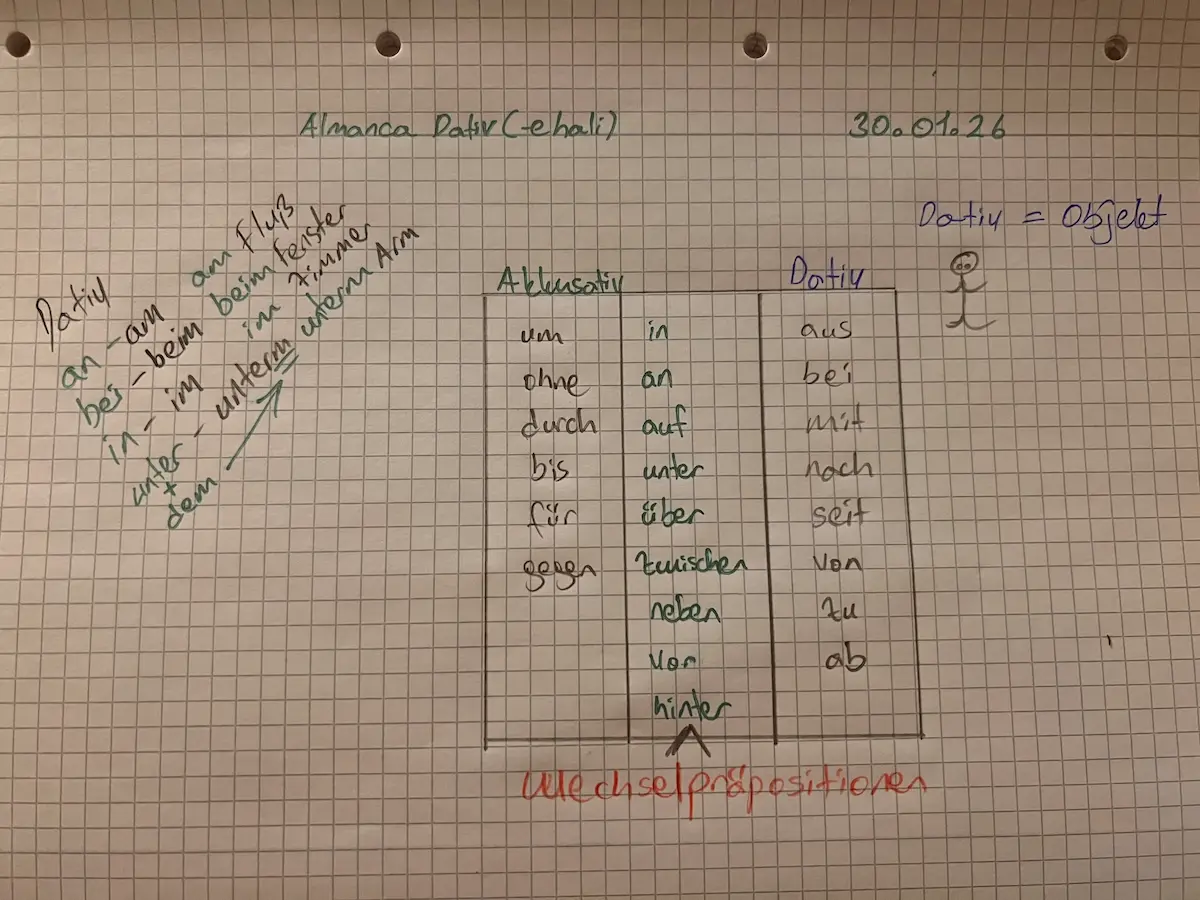 Almanca Dativ (-e hali)
30.01.26
Dativ
an - am am Fluß
bei - beim beim Fenster
in - im im Zimmer
unter - unterm unterm Arm
+
dem
Dativ = Objekt
Akkusativ Dativ
um in aus
ohne an bei
durch auf mit
bis unter nach
für über seit
gegen zwischen von
neben zu
vor ab
hinter
Wechselpräpositionen